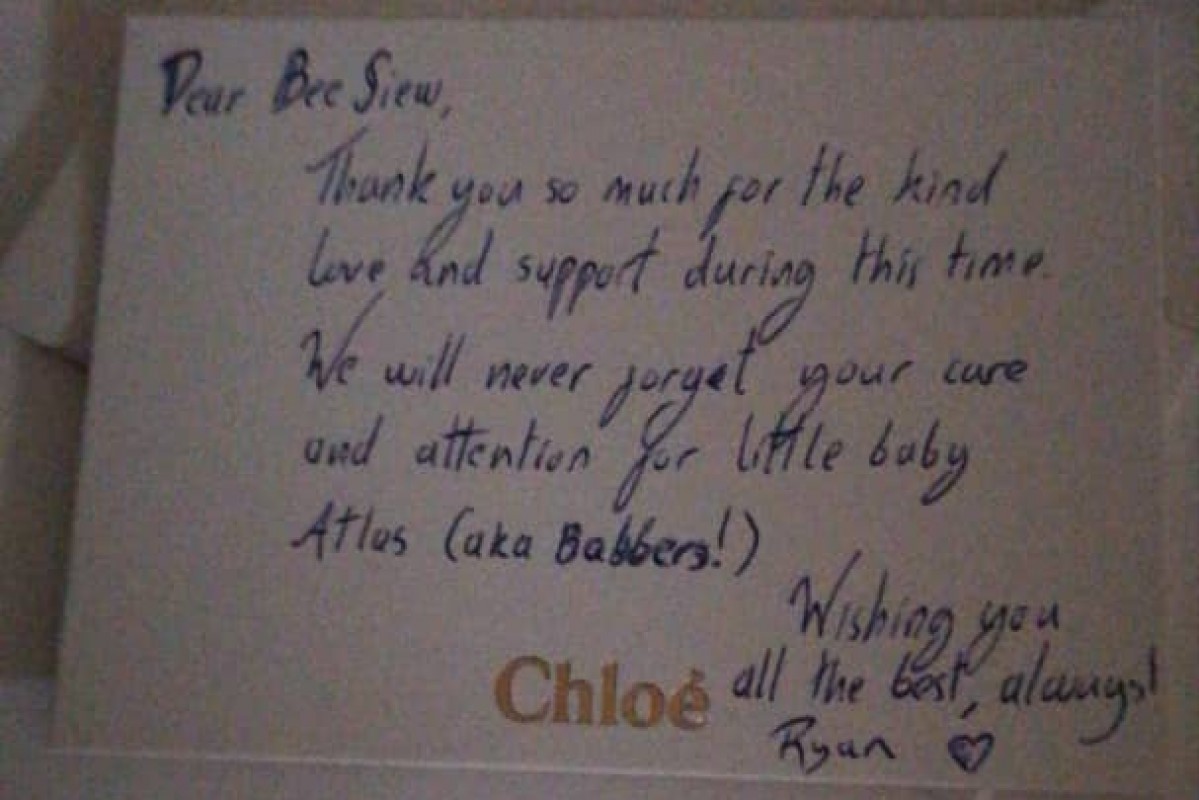 Dear Bee Siew,
Thank you so much for the kind
love and support during this time.
We will never forget your care
and attention for little baby
Atlas (aka Babbers!)
Wishing you
all the best, always!
Ryan
Chloé